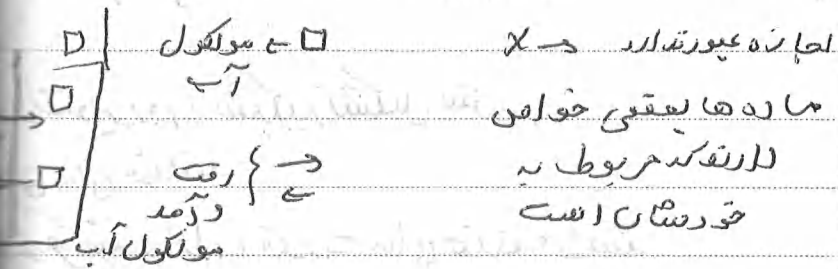 اجازه عبور ندارد → x
ماده ها بعضی خواص
دارند که مربوط به
خودشان است
□ → مولکول
آب
رفت
و آمد
مولکول آب